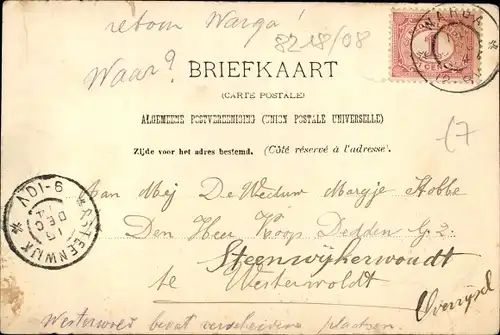 retour Warga!
8218/08
Waar?
WARGA
1
BRIEFKAART
(CARTE POSTALE)
ALGEMEENE POSTVEREENIGING (UNION POSTALE UNIVERSELLE)
Zijde voor het adres bestemd. (Côté réservé à l'adresse).
(7
Aan Mej De Weduw Margje Hobbe
Den Heer Koop Dedden G z
Steenwijkerwoudt
te Westerwoldt
Overijsel
STEENWIJK
15 DEC
VDI-6
Westerwold bevat verscheidene plaatsen